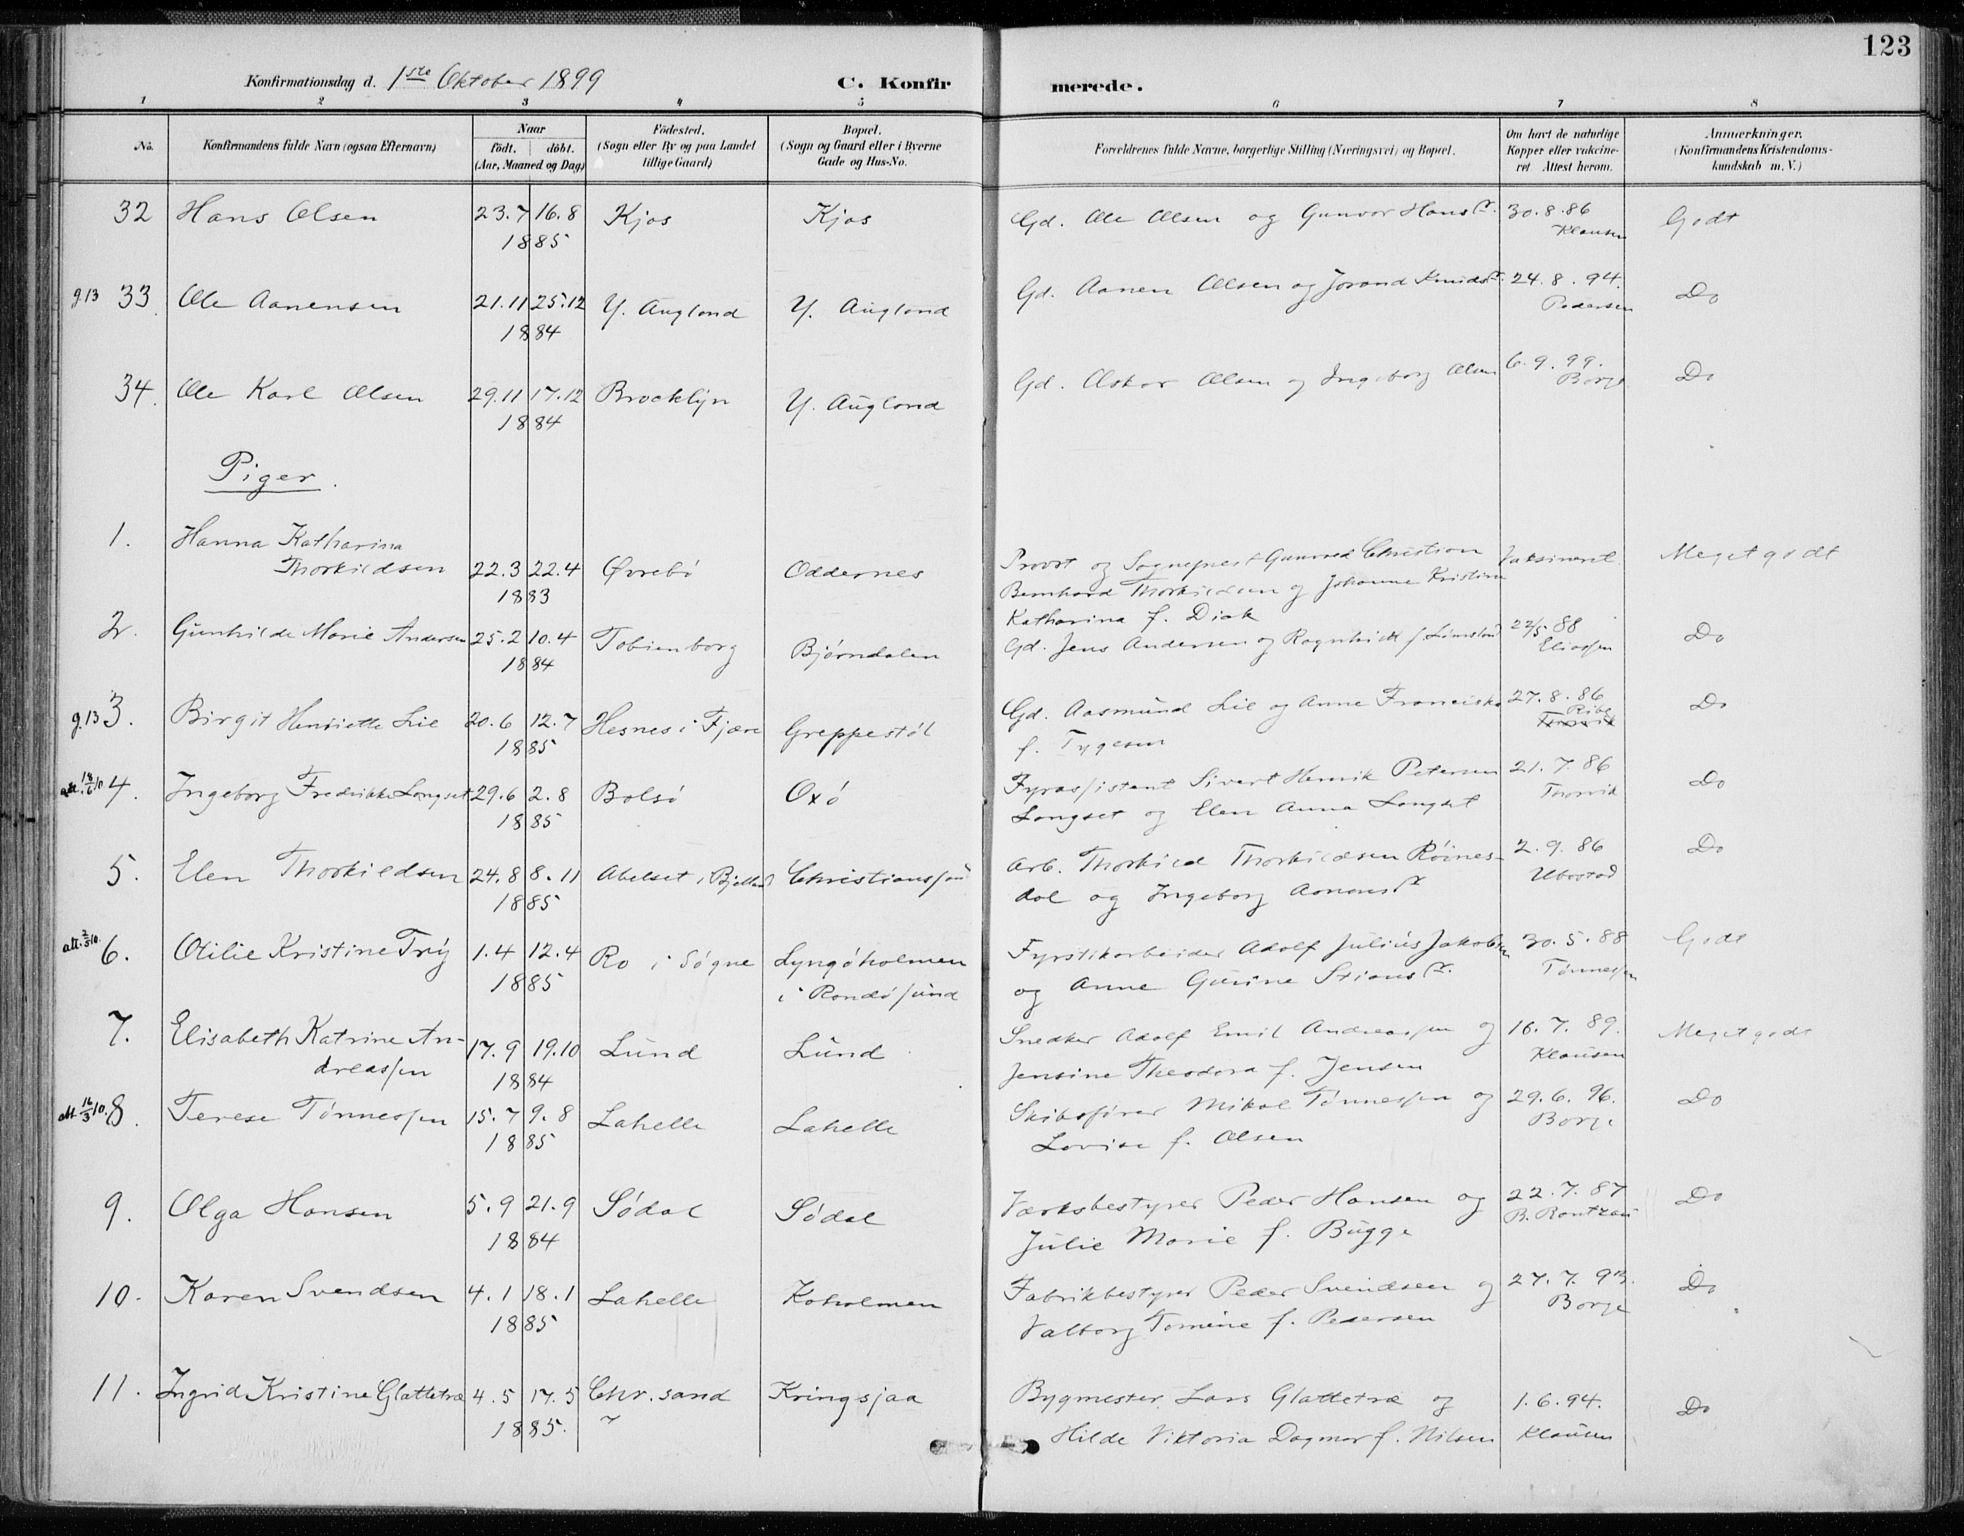 123
Konfirmationsdag d. 1ste Oktober 1899
C. Konfirmerede.
1 2 3 4 5 6 7 8
No.
Konfirmandens fulde Navn (ogsaa Efternavn)
Naar
født. døbt.
(Aar, Maaned og Dag)
Födested.
(Sogn eller By og paa Landet
tillige Gaard)
Bopæl.
(Sogn og Gaard eller i Byerne
Gade og Hus-No.
Forældrenes fulde Navne, borgerlige Stilling (Næringsvei) og Bopæl.
Om havt de naturlige
Kopper eller vakcine-
ret Attest herom.
Anmærkninger.
(Konfirmandens Kristendoms-
kundskab m. V.)
32 Hans Olsen 23.7 16.8 Kjos Kjos Gd. Ole Olsen og Gunvor Hansdr. 30.8.86 Godt
1885 Klausen
g.13 33. Ole Aanensen 21.11 25.12 Y. Augland Y. Augland Gd. Aanen Olsen og Jorand Knudsdr. 24.8.94. Do
1884 Pedersen
34. Ole Karl Olsen 29.11 17.12 Brooklyn Y. Augland Gd. Oskar Olsen og Ingeborg Olsen 6.9.99. Do
1884 Borge
Piger.
1. Hanna Katharina
Thorkildsen 22.3 22.4 Øvrebö Oddernes Provst og Sognepræst Gunvald Christian Vaksineret Meget godt
1883 Bernhard Thorkildsen og Johanne Kristine
Katharina f. Dick
2. Gunhilde Marie Andersen 25.2 10.4 Tobienborg Bjørndalen Gd. Jens Andersen og Ragnhild f. 22/5 88 Do
1884 Eliassen
g.13 3. Birgit Henriette Lie 20.6 12.7 Hesnes i Fjære Greppestøl Gd. Aasmund Lie og Anne Franciska 27.8.86 Do
1885 f. Tygesen Ribe
att. 18/6 10 4. Ingeborg Fredrikke Longset 29.6 2.8 Bolsö Oxö Fyrassistent Sivert Henrik Petersen 21.7.86 Do
1885 Longset og Elen Anna Longset
5. Elen Thorkildsen 24.8 8.11 Abelset i Bjelland Christianssand Arb. Thorkild Thorkildsen Röines- 2.9.86 Do
1885 dal og Ingeborg Aanensdr Ubostad
att. 2/5 10. 6. Otilie Kristine Try 1.4 12.4 Ro i Søgne Lyngöholmen Fyrstikarbeider Adolf Julius Jakobsen 30.5.88 Godt
1885 i Randösund og Anne Gurine Stiansdr. Tönnessen
7. Elisabeth Katrine An-
dreassen 17.9 19.10 Lund Lund Snedker Adolf Emil Andreassen og 16.7.89. Meget godt
1884 Jensine Theodora f. Jensen Klausen
att. 16/3 10. 8. Terese Tönnessen 15.7 9.8 Lahelle Lahelle Skibsförer Mikal Tönnessen og 29.6.96. Do
1885 Lovise f. Olsen Borge
9. Olga Hansen 5.9 21.9 Södal Södal Værksbestyrer Peder Hansen og 22.7.87 Do
1884 Julie Marie f. Bugge B. Rantzau
10. Karen Svendsen 4.1 18.1 Lahelle Koholmen Fabrikbestyrer Peder Svendsen og 27.7.93. Do
1885 Valborg Tomine f. Pedersen Borge
11. Ingrid Kristine Glattetræ 4.5 17.5 Chr.sand Kringsjaa Bygmester Lars Glattetræ og 1.6.94. Do
1885. Hilde Viktoria Dagmar f. Nilsen Klausen